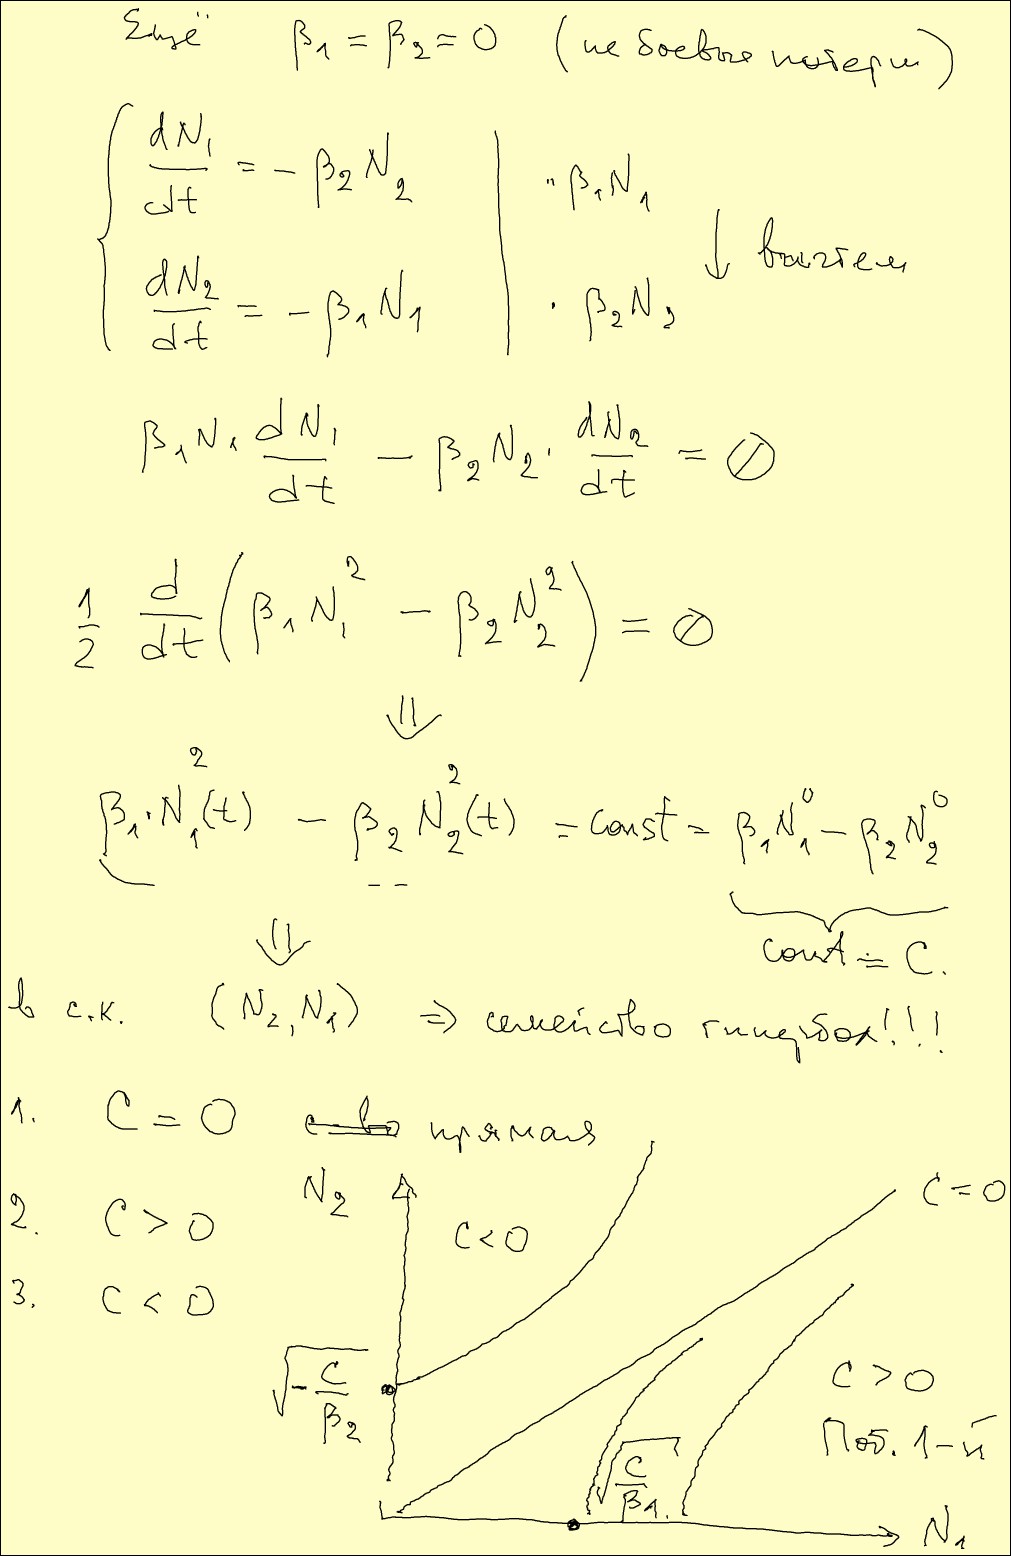 Ещё β₁ = β₂ = 0 (не боевые потери)
dN₁/dt = - β₂N₂ | · β₁N₁
↓ вычтем
dN₂/dt = - β₁N₁ | · β₂N₂
β₁N₁ dN₁/dt - β₂N₂ · dN₂/dt = 0
1/2 d/dt (β₁N₁² - β₂N₂²) = 0
⇓
β₁·N₁²(t) - β₂N₂²(t) = const = β₁N₁⁰ - β₂N₂⁰
const = C.
⇓
в с.к. (N₂, N₁) ⇒ семейство гипербол!!!
1. C = 0 прямая
N₂
C = 0
2. C > 0
C < 0
3. C < 0
√(-C/β₂)
C > 0
Поб. 1-й
√(C/β₁.)
N₁